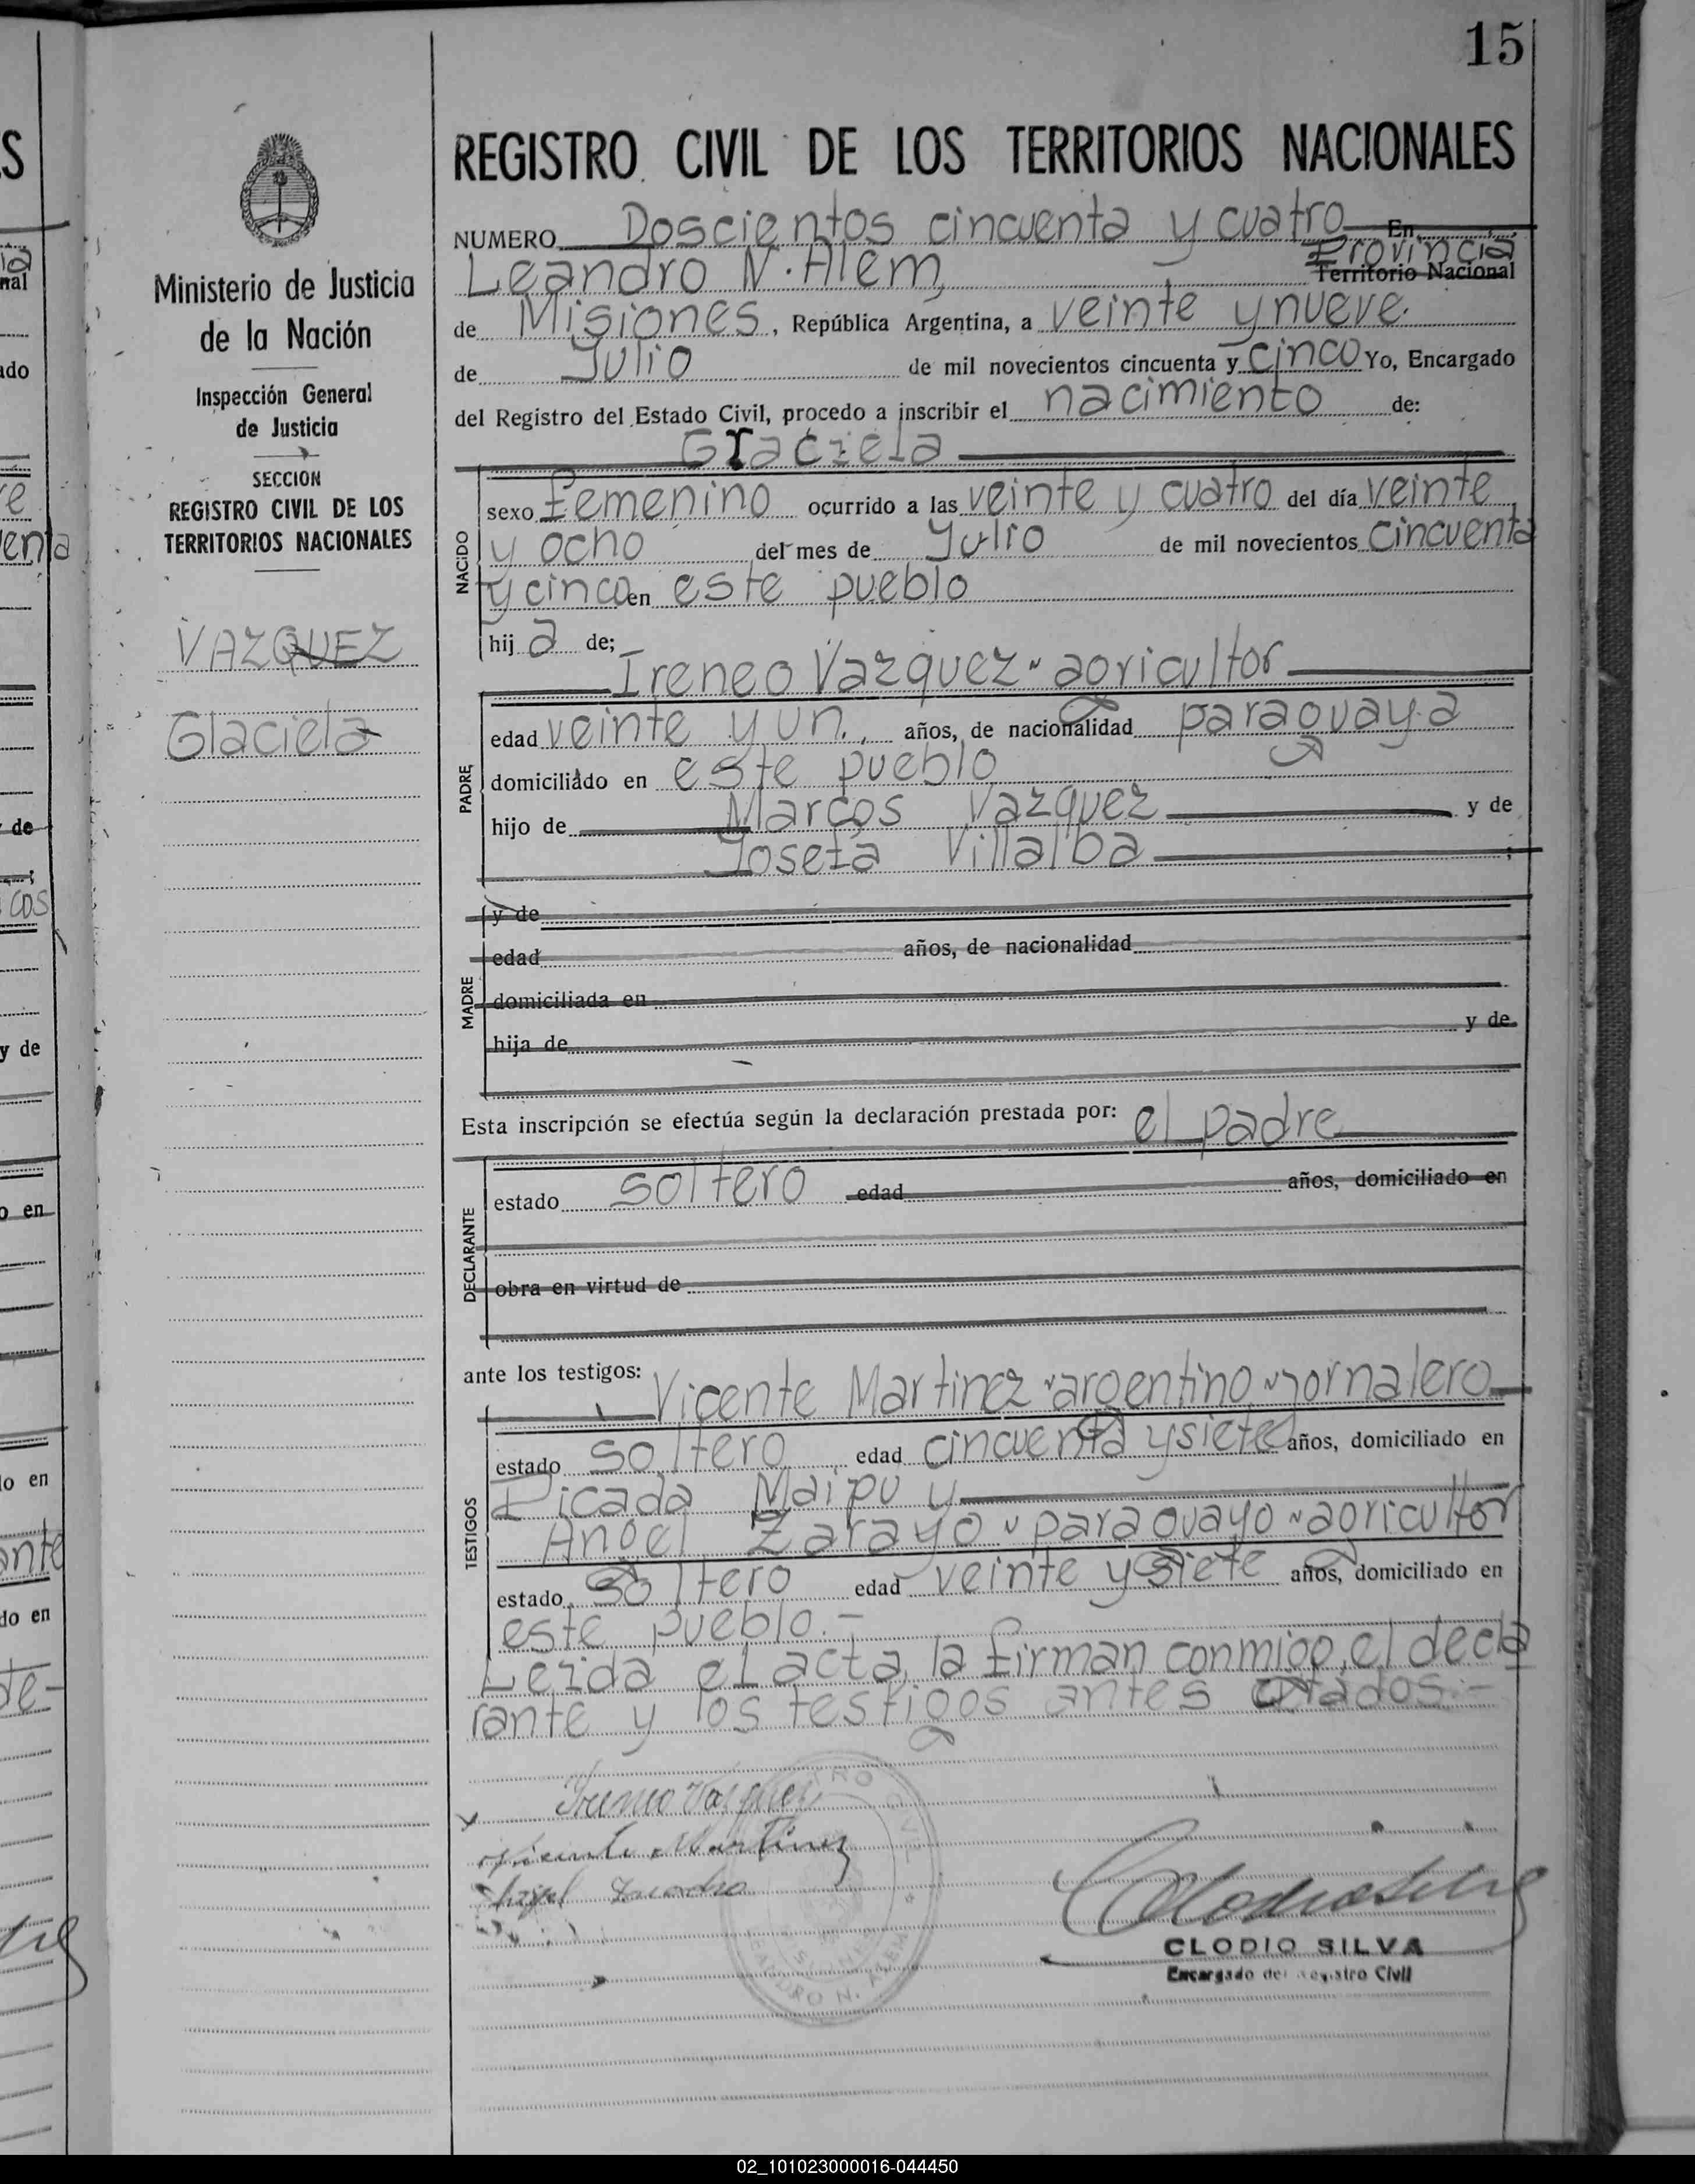 15
REGISTRO CIVIL DE LOS TERRITORIOS NACIONALES
Ministerio de Justicia
de la Nación
Inspección General
de Justicia
SECCION
REGISTRO CIVIL DE LOS
TERRITORIOS NACIONALES
VAZQUEZ
Glaciela
NUMERO Doscientos cincuenta y cuatro En
Leandro N. Alem, Provincia
Territorio Nacional
de Misiones, República Argentina, a veinte y nueve
de Julio de mil novecientos cincuenta y cinco Yo, Encargado
del Registro del Estado Civil, procedo a inscribir el nacimiento de:
Graciela
NACIDO
sexo femenino ocurrido a las veinte y cuatro del día veinte
y ocho del mes de Julio de mil novecientos cincuenta
y cinco en este pueblo
hij a de;
Ireneo Vazquez - agricultor
PADRE
edad veinte y un. años, de nacionalidad paraguaya
domiciliado en este pueblo
hijo de Marcos Vazquez y de
Josefa Villalba ;
MADRE
y de
edad años, de nacionalidad
domiciliada en
hija de y de
Esta inscripción se efectúa según la declaración prestada por: el padre
DECLARANTE
estado soltero edad años, domiciliado en
obra en virtud de
ante los testigos:
Vicente Martinez - argentino - jornalero
TESTIGOS
estado soltero edad cincuenta y siete años, domiciliado en
Picada Maipu y
Angel Zarayo - paraguayo - agricultor
estado soltero edad veinte y siete años, domiciliado en
este pueblo.-
Leida el acta, la firman conmigo, el decla
rante y los testigos antes citados.-
Ireneo Vazquez
Vicente Martinez
Angel
CLODIO SILVA
Encargado del Registro Civil
LEANDRO N. ALEM
02_101023000016-044450